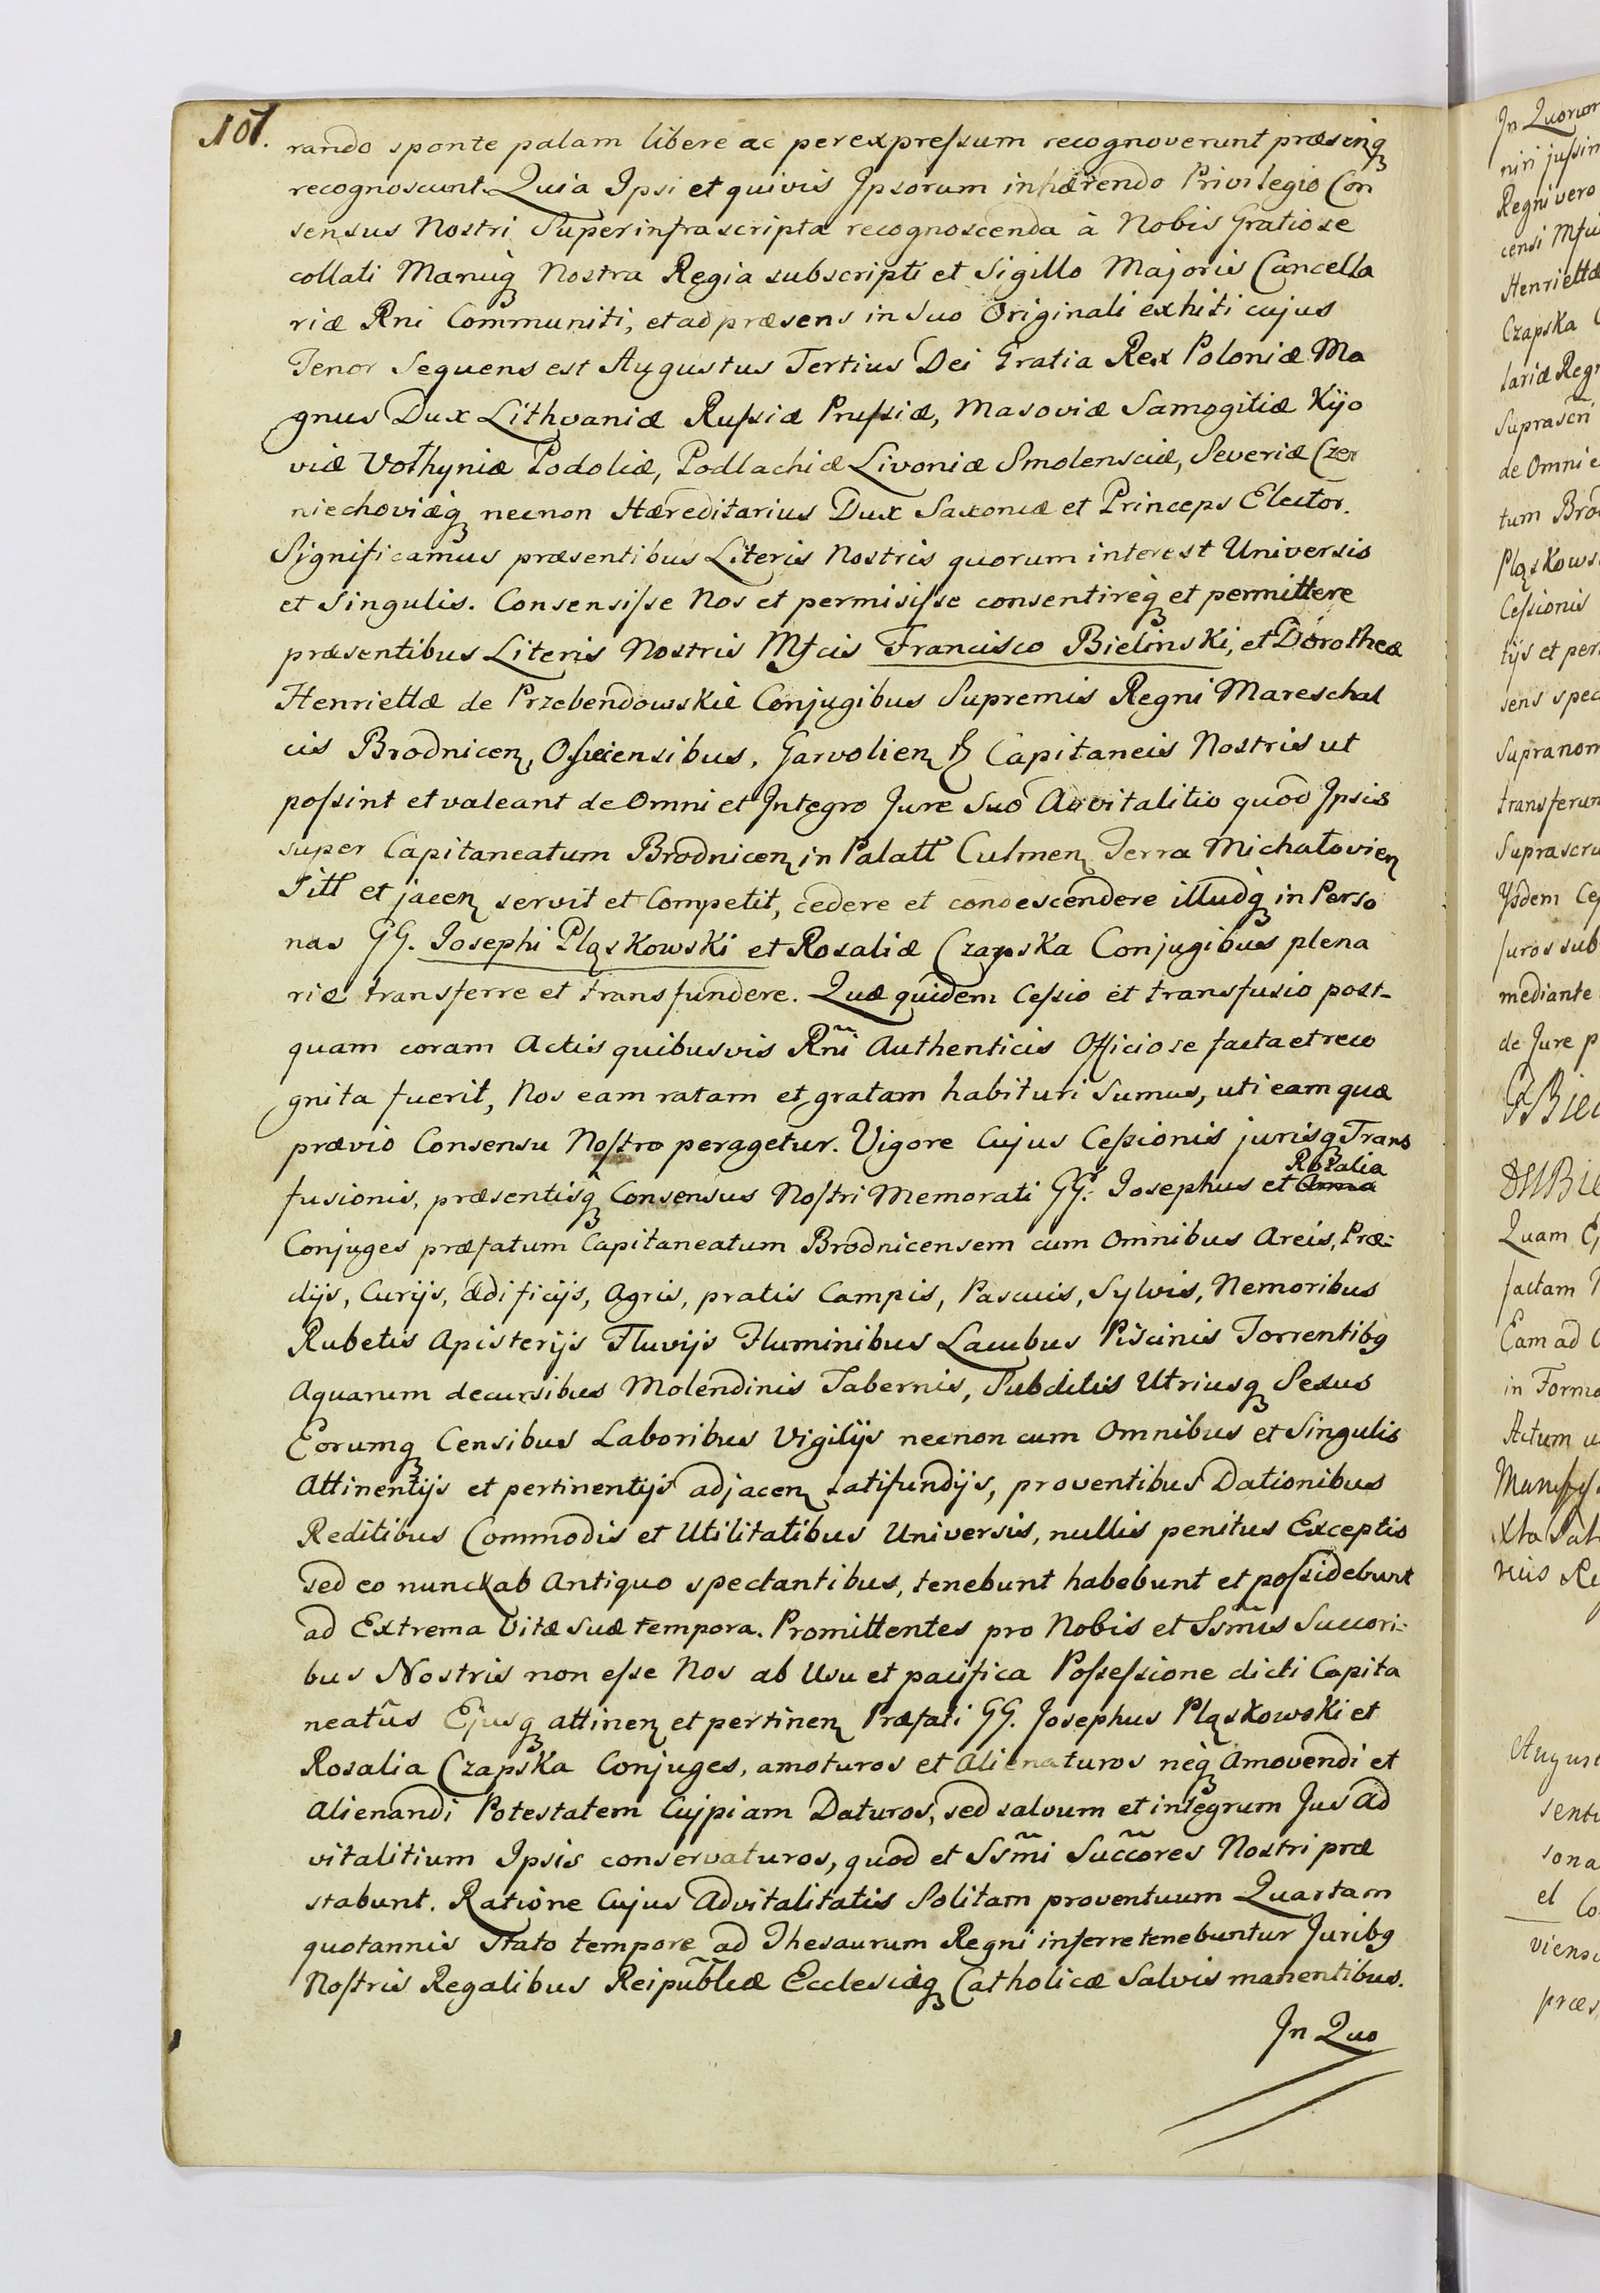 101.
rando sponte palam libere ac per expressum recognoverunt præsenq̃
recognoscunt. Quia Ipsi et quivis Ipsorum inhærendo Privilegio Con
sensus Nostri Super infrascripta recognoscenda à Nobis Gratiose
collati Manuq̃ Nostra Regia subscripti et Sigillo Majoris Cancella
riæ Rni Communiti, et ad præsens in Suo Originali exhiti cujus
Tenor Sequens est Augustus Tertius Dei Gratia Rex Poloniæ Ma
gnus Dux Lithvaniæ Russiæ Prussiæ, Masoviæ Samogitiæ Kijo
viæ Vołhyniæ Podoliæ, Podlachiæ Livoniæ Smolensciæ, Severiæ Czer
niechoviæq̃ necnon Hæreditarius Dux Saxoniæ et Princeps Elector.
Significamus præsentibus Literis Nostris quorum interest Universis
et Singulis. Consensisse Nos et permisisse consentireq̃ et permittere
præsentibus Literis Nostris Mfcis Francisco Bielinski, et Dorotheæ
Henriettæ de Przebendowskie Conjugibus Supremis Regni Mareschal
cis Brodnicen, Osiecensibus, Garvolien & Capitaneis Nostris ut
possint et valeant de Omni et Integro Jure Suo Advitalitio quod Ipsis
super Capitaneatum Brodnicen in Palatt Culmen Terra Michałovien
Sitt et jacen servit et Competit, cedere et condescendere illudq̃ in Perso
nas GG. Josephi Pląskowski et Rosaliæ Czapska Conjugibus plena
riæ transferre et transfundere. Quæ quidem Cessio et transfusio post-
quam coram Actis quibusvis Rñi Authenticis Officiose facta et reco
gnita fuerit, Nos eam ratam et gratam habituri Sumus, uti eam quæ
prævio Consensu Nostro peragetur. Vigore Cujus Cessionis jurisq̃ Trans
Rozalia
fusionis, præsentisq̃ Consensus Nostri Memorati GG. Josephus et Anna
Conjuges præfatum Capitaneatum Brodnicensem cum Omnibus Areis, Præ:
dijs, Curijs, ædificijs, Agris, pratis Campis, Pascuis, Sylvis, Nemoribus
Rubetis Apisterijs Fluvijs Fluminibus Lacubus Piscinis Torrentibq
Aquarum decursibus Molendinis Tabernis, Subditis Utriusq̃ Sexus
Eorumq̃ Censibus Laboribus Vigilijs necnon cum Omnibus et Singulis
Attinentijs et pertinentijs adjacen Latifundijs, proventibus Dationibus
Reditibus Commodis et Utilitatibus Universis, nullis penitus Exceptis
sed eo nunc & ab Antiquo spectantibus, tenebunt habebunt et possidebunt
ad Extrema Vitæ Suæ tempora. Promittentes pro Nobis et Ssm̃is Succori:
bus Nostris non esse Nos ab Usu et pacifica Possessione dicti Capita
neatũs Ejusq̃ attinen et pertinen Præfati GG. Josephus Pląskowski et
Rosalia Czapska Conjuges, amoturos et Alienaturos neq̃ Amovendi et
Alienandi Potestatem Cujpiam Daturos, sed salvum et integrum Jus Ad
vitalitium Ipsis conservaturos, quod et Ssm̃i Succ̃ores Nostri præ
stabunt. Ratione Cujus Advitalitatis Solitam proventuum Quartam
quotannis Stato tempore ad Thesaurum Regni inferre tenebuntur Juribq
Nostris Regalibus Reipub̃licæ Ecclesiæq̃ Catholicæ Salvis manentibus.
In Quo
In Quorum
Regni vero
Henriettæ
Czapska
de Omni
tum Brod
Cessionis
tijs et per
sens spec
Supranom
transferun
mediante
de Jure p
Quam
factam
Eam ad
in Forma
Actum